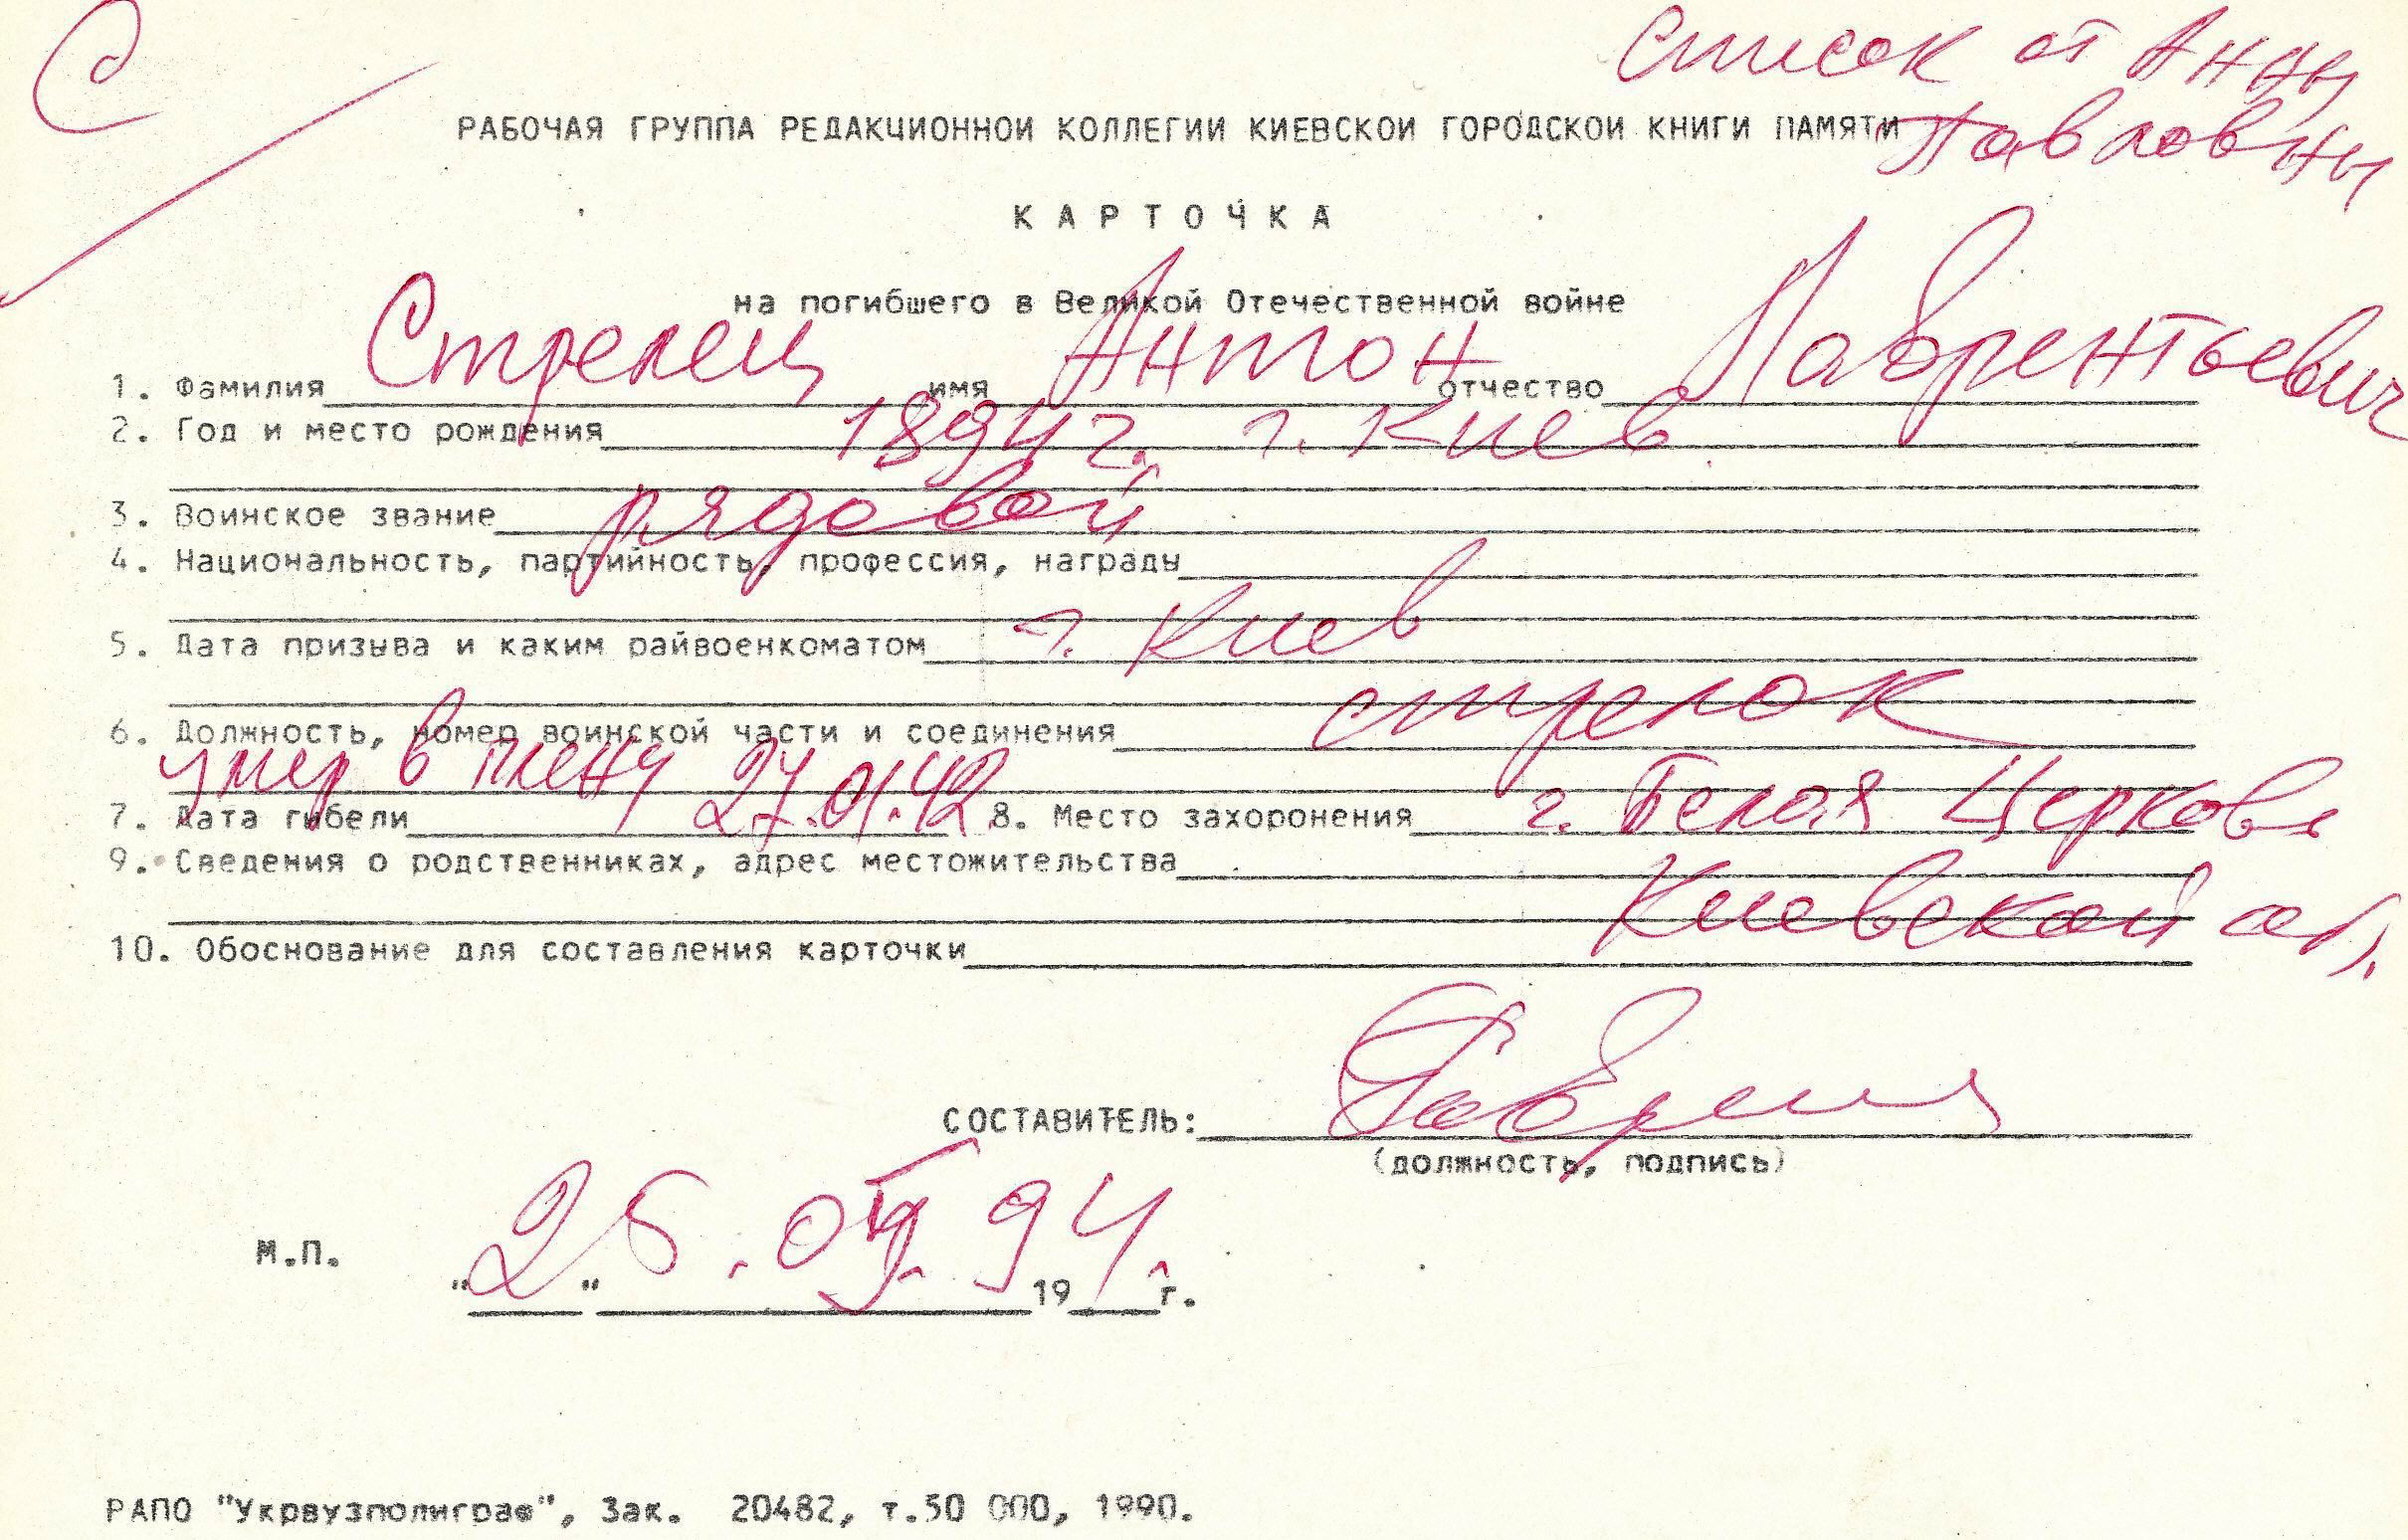 С
Список от Анны
Павловны
РАБОЧАЯ ГРУППА РЕДАКЦИОННОЙ КОЛЛЕГИИ КИЕВСКОЙ ГОРОДСКОЙ КНИГИ ПАМЯТИ
КАРТОЧКА
на погибшего в Великой Отечественной войне
1. Фамилия Стрелец имя Антон отчество Лаврентьевич
2. Год и место рождения 1894 г. г. Киев
3. Воинское звание рядовой
4. Национальность, партийность, профессия, награды
5. Дата призыва и каким райвоенкоматом г. Киев
6. Должность, номер воинской части и соединения стрелок
умер в плену 27.01.42 г. Белая Церковь
7. Дата гибели 8. Место захоронения
9. Сведения о родственниках, адрес местожительства
Киевской
10. Обоснование для составления карточки
СОСТАВИТЕЛЬ:
(должность, подпись)
М.П.
" " 19 г.
РАПО "Укрвузполиграф", Зак. 20482, т.50 000, 1990.